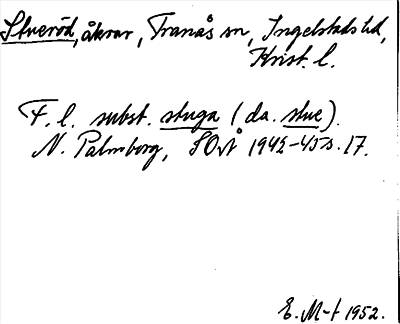 Stueröd, åkrar, Tranås sn, Ingelstads hd,
Krist. l.
F. l. subst. stuga (da. stue).
N. Palmborg, SOrtÅ 1942-43 s. 17.
E. M-t 1952.